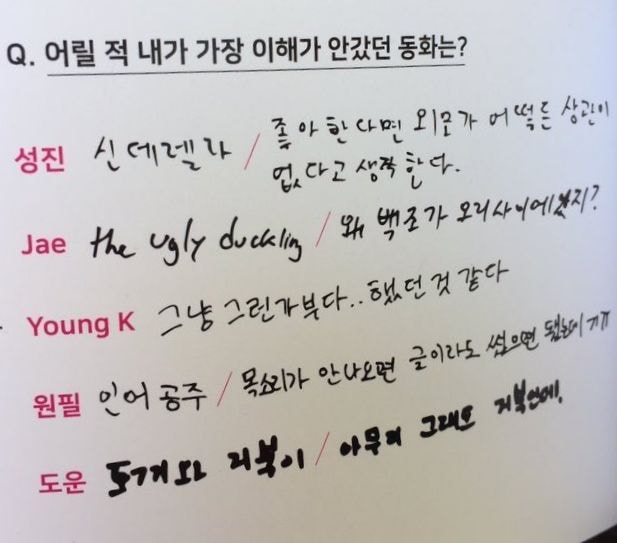 Q. 어릴 적 내가 가장 이해가 안갔던 동화는?
성진 신데렐라 / 좋아한다면 외모가 어떡든 상관이
없다고 생각한다.
Jae the ugly duckling / 왜 백조가 오리사이에 있지?
Young K 그냥 그런가부다..했던 것 같다
원필 인어 공주 / 목소리가 안나오면 글이라도 썼으면 됐는데 ㄲㄲ
도운 토끼와 거북이 / 아무리 그래도 거북인데,